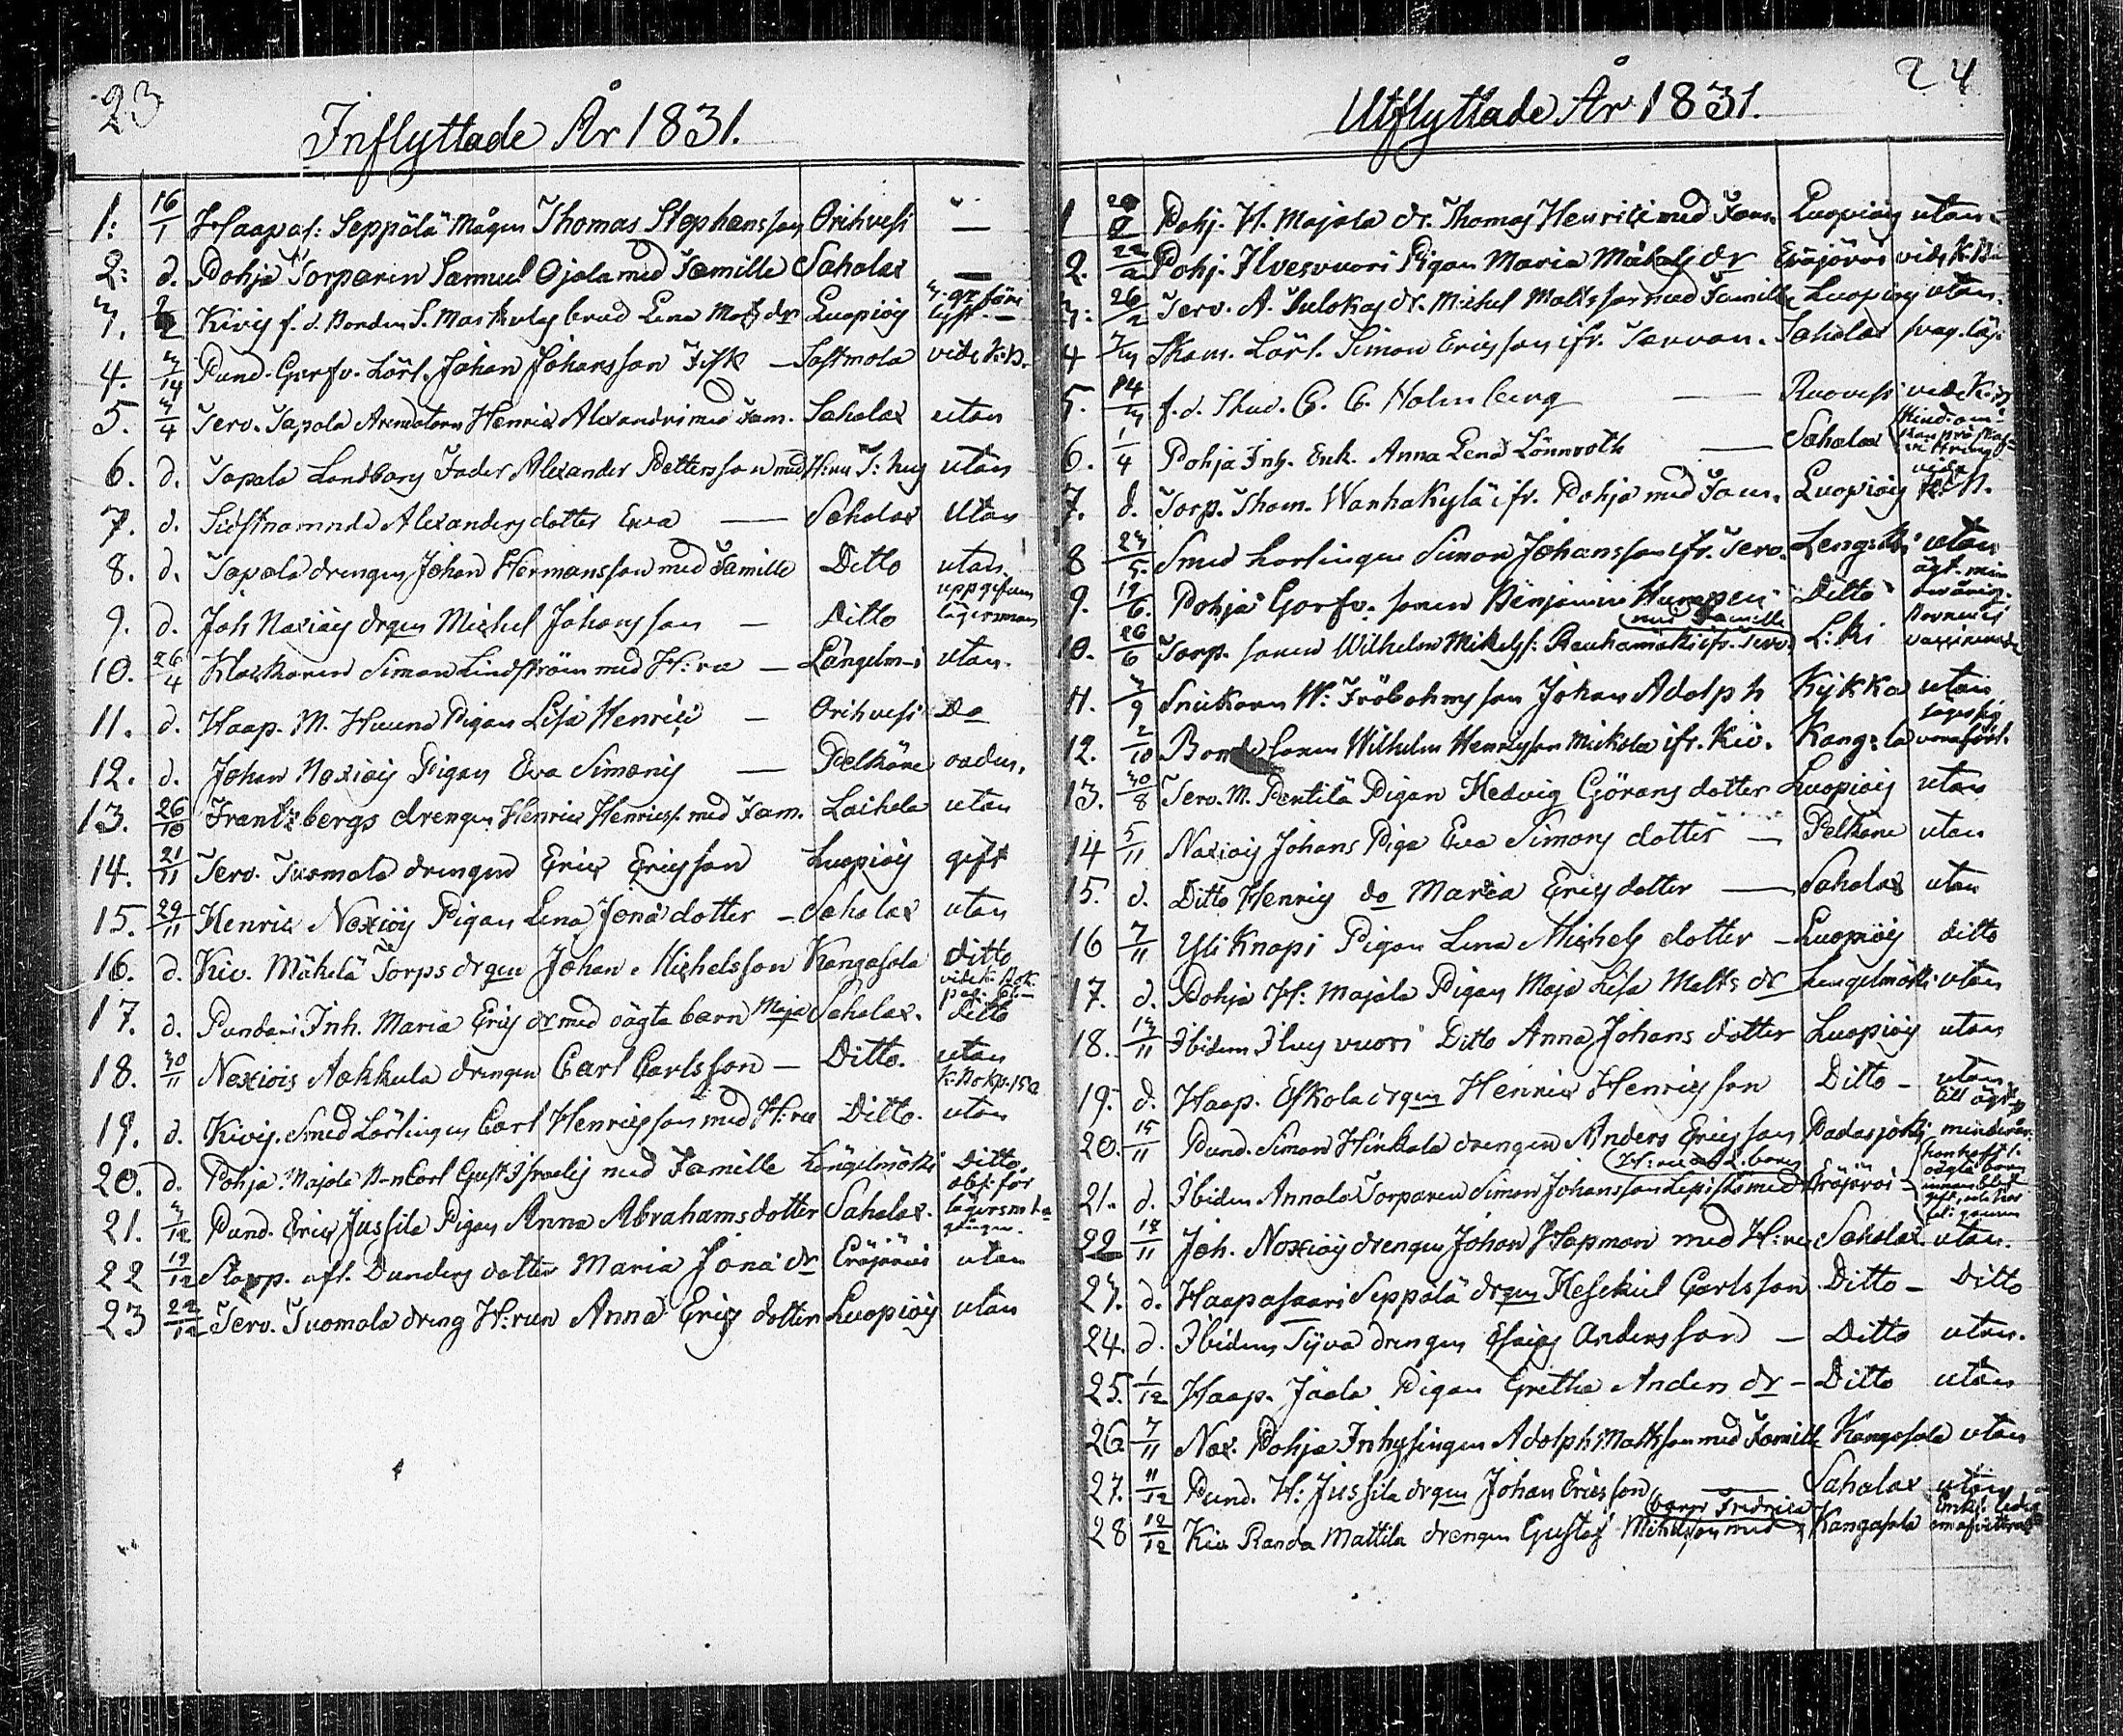 23
Inflyttade År 1831.
1: 16/1 Haapas: Seppälä Mågen Thomas Stephansson Orihvesi —
2: d. Pohja Torparen Samuel Ojala med Familie Sahalax —
3. Kivis f. d. Bonden S. Maskulas brud Lena Mats dr Luopiois 3. gr. före lyst. —
4. 3/14 Pund. Gerfv. Lärl. Johan Johansson Fisk — Sastmola vide K: B.
5. 3/4 Jerv. Tapola Arendatorn Henric Alexandri med Fam. Sahalax utan
6. d. Tapola Landbons Fader Alexander Pettersson med H:ru utan
7. d. Sidstnämnde Alexanders dotter Eva — Sahalax Utan
8. d. Tapola drengen Johan Hermansson med Familie Ditto utan
9. d. Joh Naxiois drgen Michel Johansson — Ditto uppgifven lägersman
10. 26/4 Klockaren Simon Lindström med H:ru — Längelm-i utan.
11. d. Haap. M. Huuna Pigan Lisa Henrici — Orihvesi Do
12. d. Johan Naxiois Pigan Eva Simons — Pelkäne
13. 26/10 Frantzbergs drengen Henric Henricss. med Fam. Laihela utan
14. 21/11 Jerv. Tuomola drengen Eric Ericsson Luopiois gift
15. 29/11 Henric Naxiois Pigan Lena Jona dotter — Sahalax utan
16. d. Kiv. Mäkelä Torps drgen Johan Michelsson Kangasala ditto
17. d. Pundari Inh. Maria Erics dr med oägta barn Maja Sahalax. vide K. Bok. ditto
18. 30/11 Naxiois Aakkula drengen Carl Carlsson — Ditto. utan
19. d. Kivis. Smed Lärlingen Carl Henricsson med H:ru Ditto. K. Bok p. 152 utan
20. d. Pohja Majala B-n Carl Gust Israels med Familie Längelmäki Ditto.
21. 3/12 Pund. Eric Jussila Pigan Anna Abrahams dotter Sahalax. abs: för lägersm
22 19/12 Stapp. afl. Dunders dotter Maria Jona dr Eräjärvi utan
23 22/12 Jerv. Tuomola dreng H:run Anna Erics dotter Luopiois utan
24
Utflyttade År 1831.
1 Pohj. H. Majala dr. Thomas Henrici med Fam. Luopiois utan
2. 22/2 Pohj. Ilvesvuori Pigan Maria Mickels dr Eräjärvi vide K. B
3: 26/2 Jerv. A. Sulokas dr. Michel Mattsson med Familie Luopiois utan.
4 Lärl. Simon Ericsson ifr. Sahalax svag. läs.
5. 14/3 f. d. Stud. C. G. Holmberg — Ruovesi vide K. B
6. 1/4 Pohja Inh. Enk. Anna Lena Lönnroth — Sahalax
7. d. Torp. Thom. Wanhakylä ifr. Pohja med Fam. Luopiois vide K. B.
8 23/5. Smed Lärlingen Simon Johansson ifr. Jerv. Lengelki utan
9. 19/6. Pohja Gerfv. sonen Benjamin Humpen Ditto
10. 26/6 Torp. sonen Wilhelm Mikelss: Rauhamäki ifr. Jerv. med Familie L: ki Barnen ej vaxinerade
11. 3/9 Snickaren W. Fröbohms son Johan Adolph Kijkka utan
12. 2/10 Bonde sonen Wilhelm Henricsson Mickola ifr. Kiv. Kang: la säges sig vara förl.
13. 30/8 Jerv. M. Pentilä Pigan Hedvig Görans dotter Luopiois utan
14 5/11 Naxiois Johans Piga Eva Simons dotter — Pelkäne utan
15. d. Ditto Henrics do Maria Erics dotter — Sahalax utan
16 7/11 Yli Knapi Pigan Lena Michels dotter — Luopiois ditto
17. d. Pohja H: Majala Pigan Maja Lisa Matts dr Lengelmäki utan
18. 13/11 Ibidem Ilvesvuori Ditto Anna Johans dotter Luopiois utan
19. d. Haap. Eskola drgen Henric Henricsson Ditto — utan
20. 15/11 Pund. Simon Hinkala drengen Anders Ericsson Padasjoki till ägt minderår.
21. d. Ibidem Annala Torparen Simon Johansson Lepistö med H:ru och 2. barn Eräjärvi —
22 17/11 Joh. Naxiois drengen Johan Hapman med H:ru Sahalax utan.
23. d. Haapasaari Seppälä drgen Hesekiel Carlsson Ditto — Ditto
24. d. Ibidem Tyvä drengen Esaias Andersson — Ditto utan.
25. 1/12 Haap. Jaala Pigan Gretha Anders dr — Ditto utan
26 7/11 Nax. Pohja Inhysingen Adolph Mattsson med Familie Kangasala utan
27. 11/12 Pund. H: Jussila drgen Johan Ericsson — Sahalax utan
28 12/12 Kiv. Randa Mattila drengen Gustaf Michelsson med barn Fredrica Kangasala